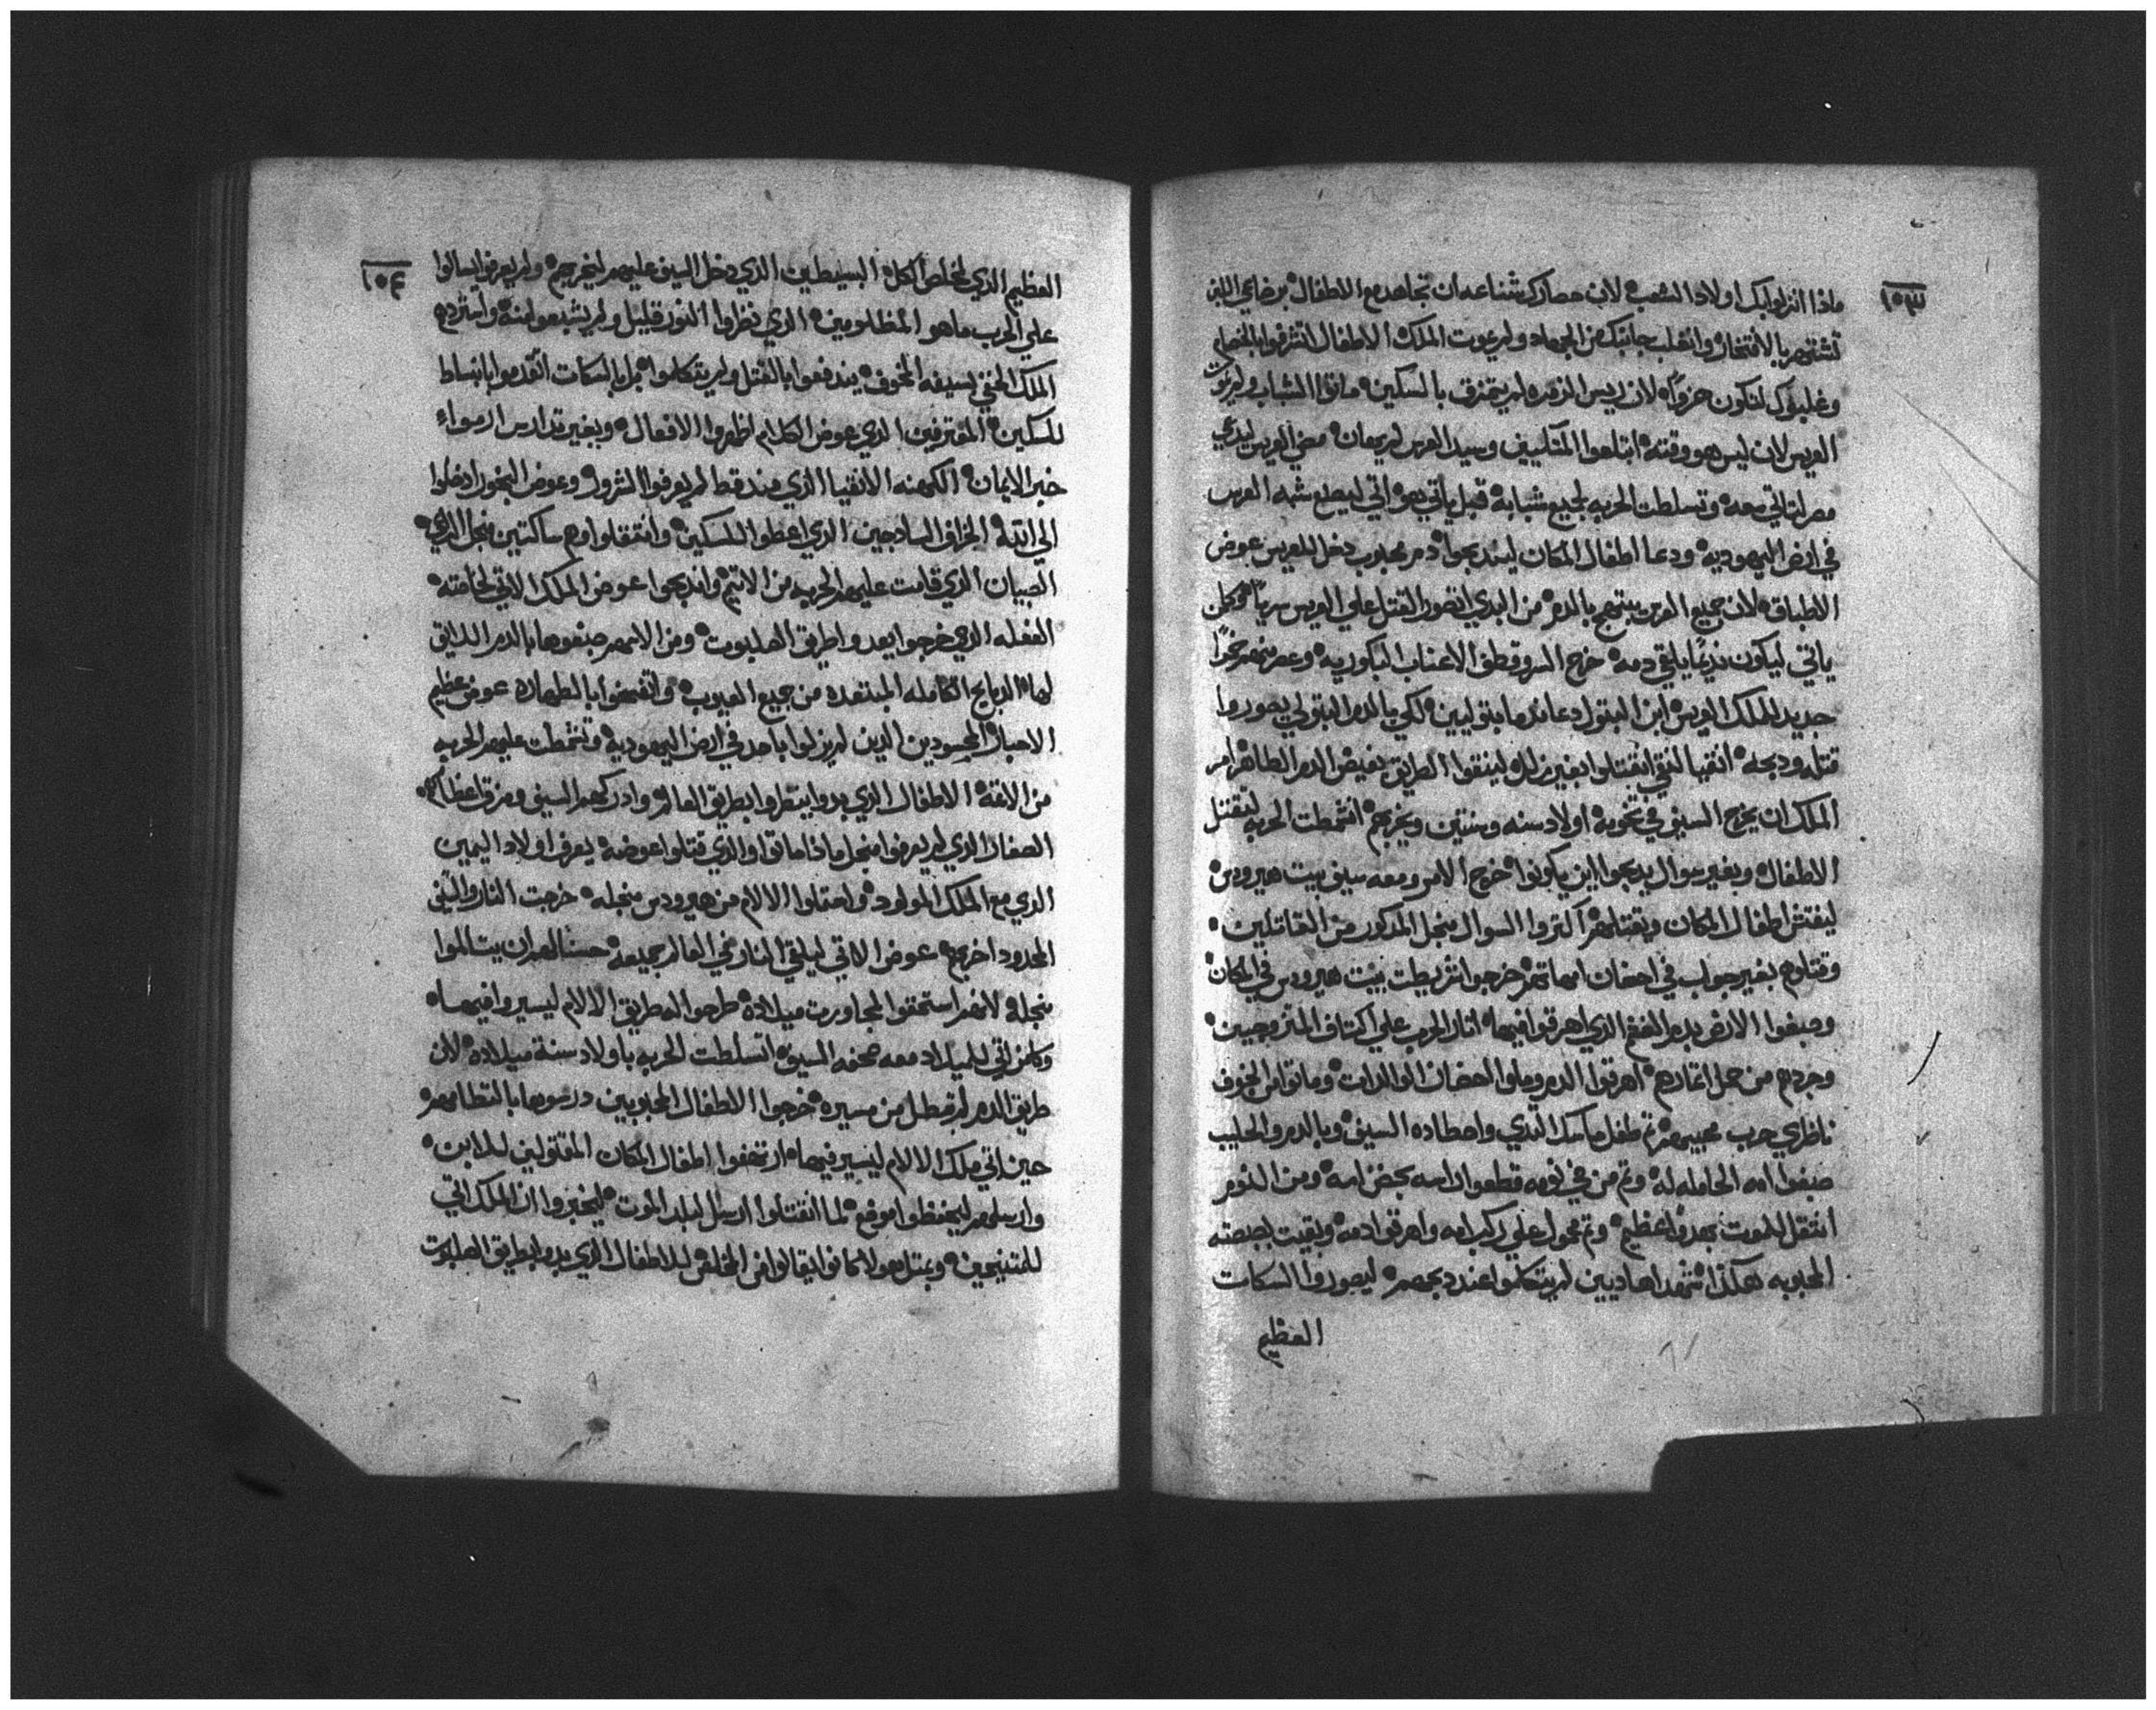 ١٥٣
ماذا انزلوا بك اولاد الشعب لان حصارك شناعه ان تجاهد مع الاطفال برضاعي اللبن
تشتهر بالافتخار وانقلب جانبك من الجهاد ولم يموت الملك الاطفال اتشرفوا بالخصام
وغلبوك لتكون حزوا لان ريس الزمره لم يتمزق بالسكين ماتوا الشباب ولم يموت
العريس لان ليس هو وقته ابتلعوا المتكليين وسيد العرس لم يهان مضي العريس ليدعي
مصر لتاتي معه وتسلطت الحربه لجميع شبابه قبل ياتي هو اتي ليصنع شبه العرس
في ارض اليهوديه ودعا اطفال المكان ليندبحوا دم محبوب دخل للعريس عوض
الاطباق لان جميع العرس يبتهج بالدم من البدي اتصور القتل علي العريس سريا
ياتي ليكون بديا يلقي دمه خرج السر وقطف الاعناب الباكوريه وعصر منهم خمرا
جديد للملك العريس ابن البتول دعا ندما بتوليين لكي بالدم البتولي يصوروا
قتله ودبحه اتقيا لنقي انقتلوا بغير زله لينقوا الطريق بفيض الدم الطاهر امر
الملك ان يخرج السيف في تخومه اولاد سنه وسنتين ويخرجهم اتشمطت الحربه لتقتل
الاطفال وبغير سوال يدبحوا اين يكونوا خرج الامر ومعه سيف بيت هيرودس
ليفتش اطفال المكان ويقتلهم اكتروا السوال منجل المدكور من القاتلين
وقتلوهم بغير جواب في احضان امهاتهم خرجوا شريطت بيت هيرودس في المكان
وصبغوا الارض بدم الغنم الذي اهرقوا فيها اتار الحرب علي اكتاف المتزوجيين
وجردهم من حمل اتمارهم اهرقوا الدم وملوا احضان الوالدات وماتوا من الخوف
ناظرين حرب محبيهم تم طفل ماسك التدي واصطاده السيف وبالدم والحليب
صبغوا امه الحامله له وتم من في نومه قطعوا راسه بحضن امه ومن النوم
انتقل للموت بهدوا عظيم وتم محمول علي ركب امه واهرقوا دمه وبقيت بصبغته
المحبوبه هكذا شهدا هاديين لم يتكلموا عند دبحهم ليصوروا السكات
العظيم
١٥٤
العظيم الذي لمخلص الكل البسيطين الذي دخل السيف عليهم ليخرجهم ولم يعرفوا يسالوا
علي الحرب ماهو المظلومين الذي نظروا النور قليل ولم يشبعوا منه واشردهم
الملك الحنفي بسيفه المخوف يندفعوا بالقتل ولم يتكلموا بل بالسكات اتقدموا بانبساط
للسكين المقترفين الذي عوض الكلام اظهروا الافعال وبغير تدارس ارموا
خبر الايمان الكهنه الانقيا الذي منذ قط لم يعرفوا الشرور وعوض البخور ادخلوا
الي الله الخراف السادجين الذي اعطوا للسكين وانتقلوا وهم ساكتين منجل الراعي
الصبيان الذي قامت عليهم الحربه من الاتيم واندبحوا عوض الملك الاتي لخلاصته
الفعله الذي خرجوا يعدوا طريق الصلبوت ومن الامهم صبغوها بالدم اللايق
لها الدبايح الكامله المبتعده من جميع العيوب واتفحصوا بالطهاره عوض عظيم
الاحبار المحسودين الذين لم يزلوا باحد في ارض اليهوديه وتشمطت عليهم الحربه
من الافه الاطفال الذي بدوا ينتظروا بطريق العالم وادركهم السيف ومزق اعضاهم
الصغار الذي لم يعرفوا منجل ماذا ماتوا والذي قتلوا عوضه يعرف اولاد اليمين
الذي مع الملك المولود واحتملوا الالام من هيرودس منجله خرجت النار والسيف
المحدود اخرج عوض الاتي ليلقي النار في العالم جميعه حسنا لهم ان يتالموا
منجله لانهم استحقوا لمجاورت ميلاده طرحوا له طريق الالام ليسير وا فيها
وكمن اتي للميلاد معه صحفه السيف اتسلطت الحربه باولاد سنة ميلاده لان
طريق الدم لم تبطل من مسيره خرجوا الاطفال المحبوبين درعوها بالتطامهم
حين اتي ملك الالام ليسير فيها ارتخفوا اطفال المكان المقتولين للابن
وارسلهم ليحفظوا موضع لما انقتلوا ارسل لبلد الموت ليخبروا ان الملك اتي
للمتنيحين وبمتل هولا كانوا يقالوا من المخلص للاطفال الذي بدوا بطريق الصلبوت